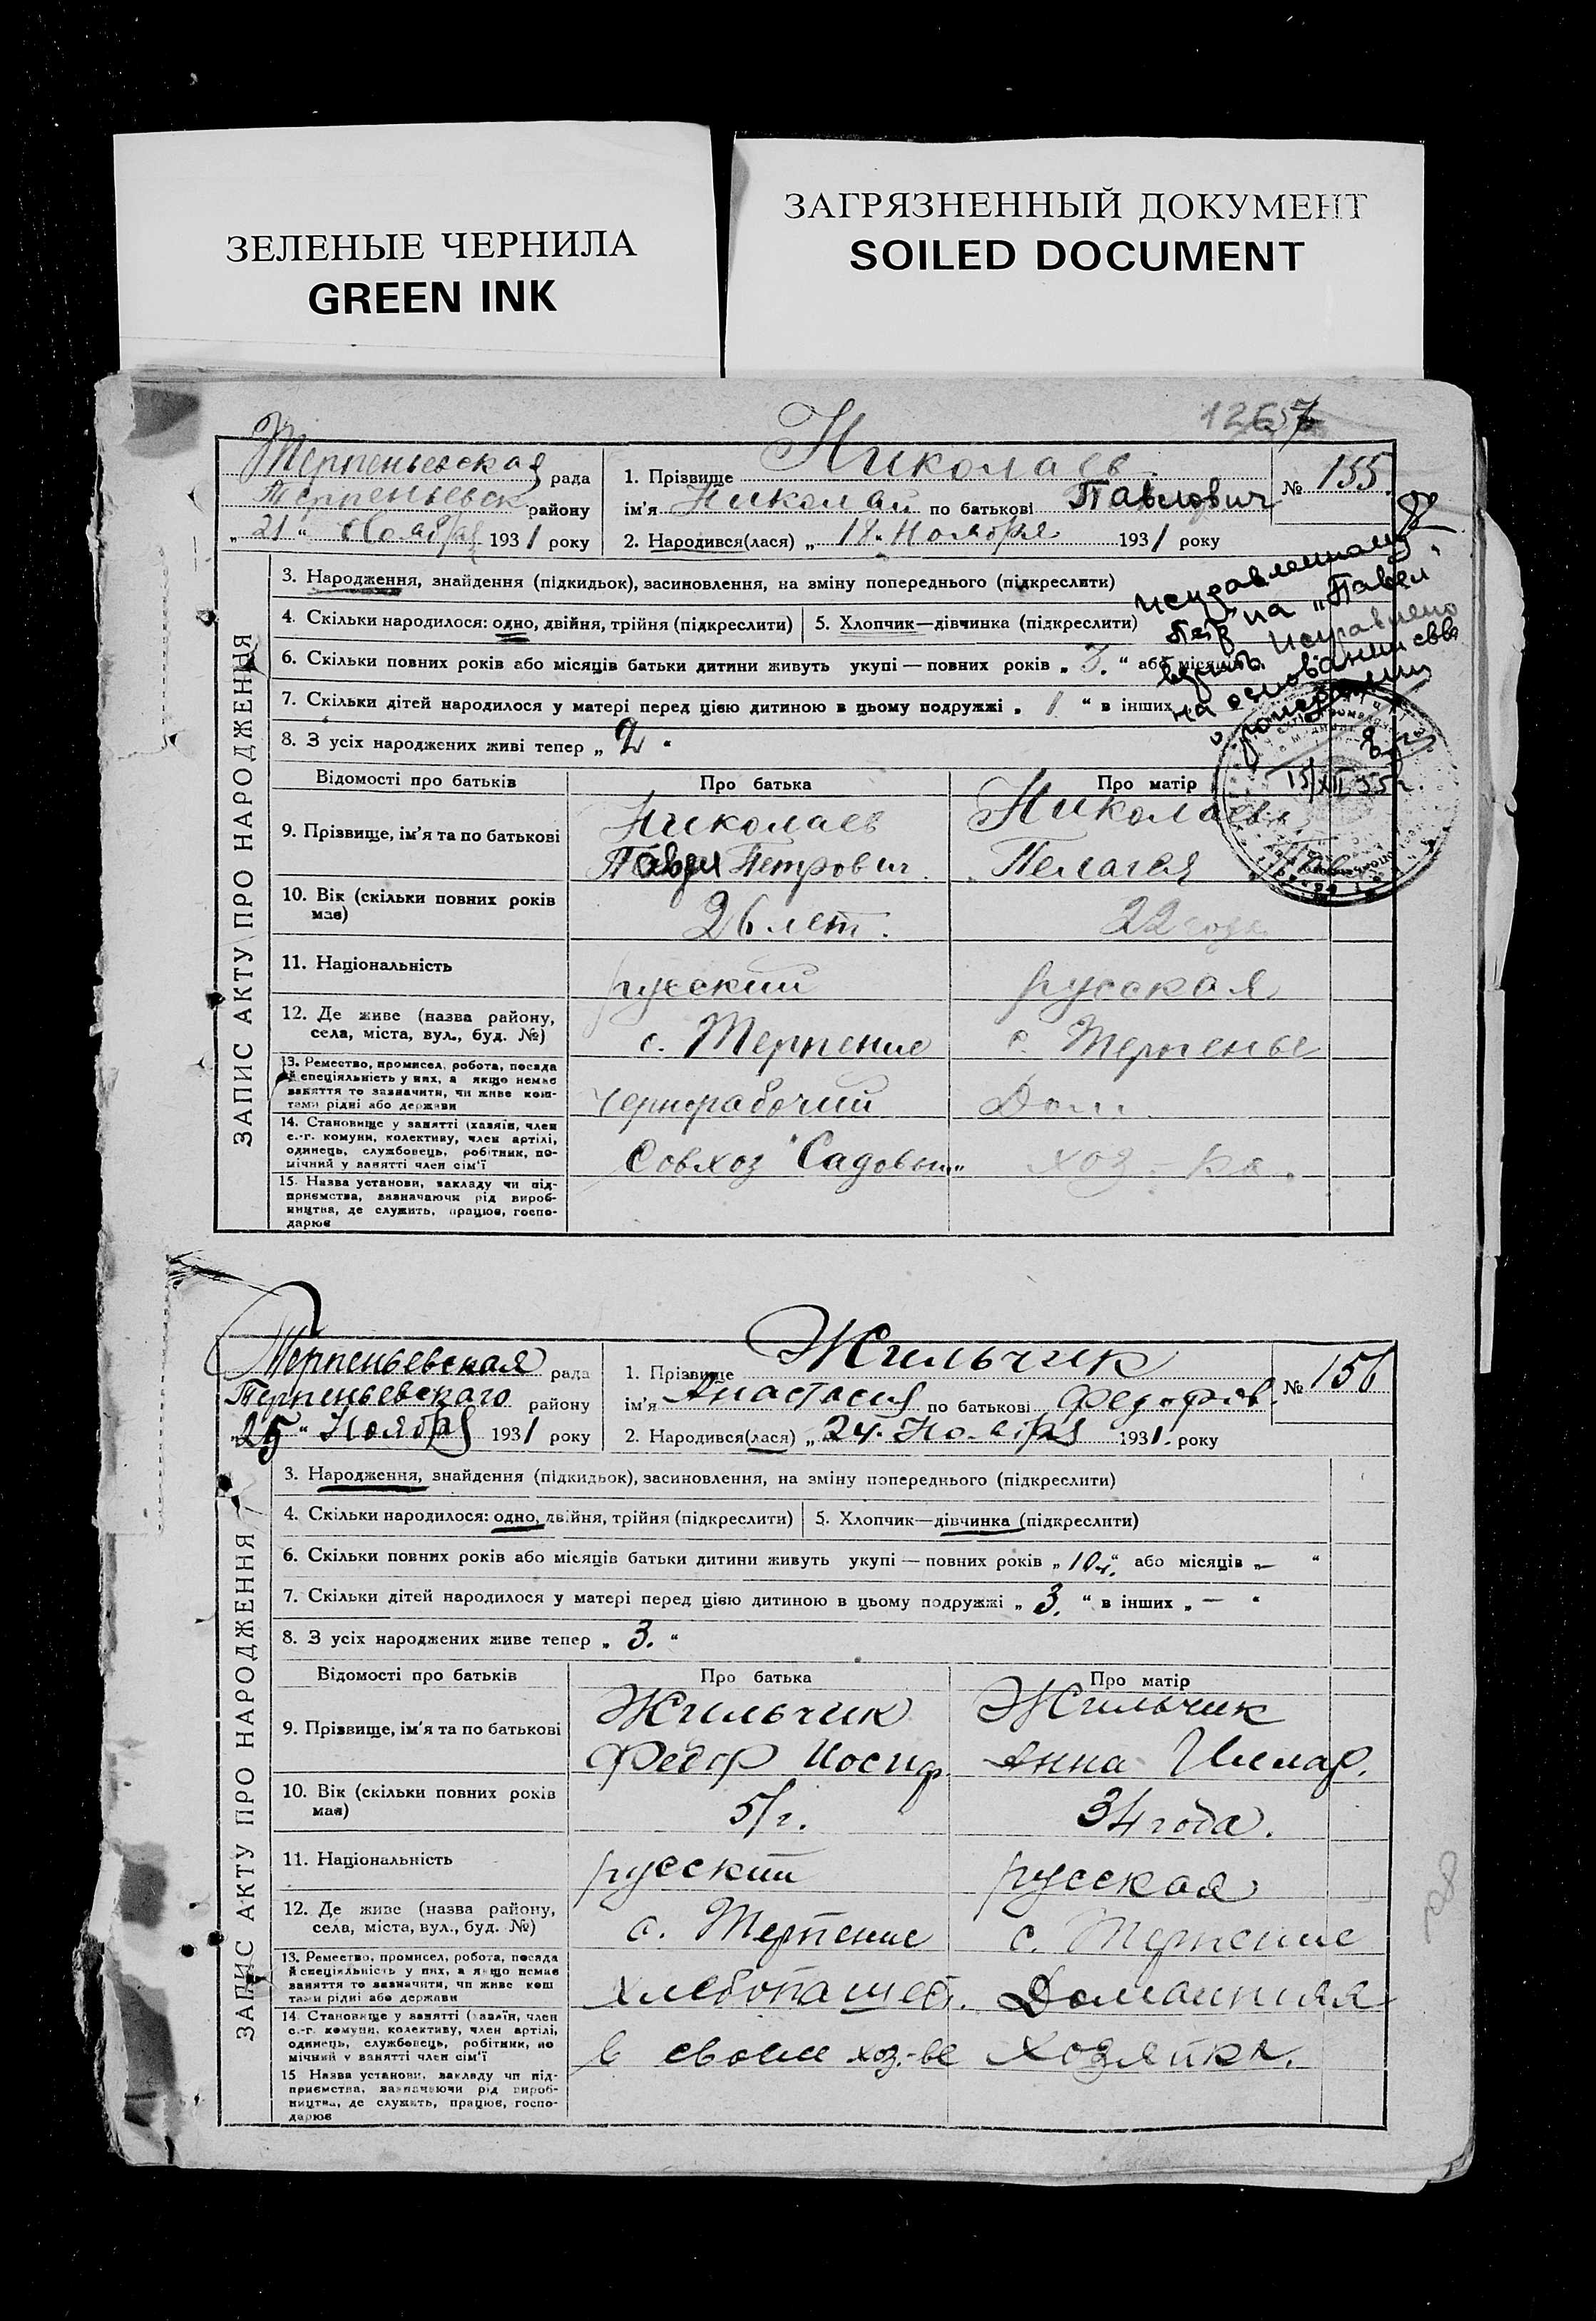 ЗЕЛЕНЫЕ ЧЕРНИЛА
GREEN INK
ЗАГРЯЗНЕННЫЙ ДОКУМЕНТ
SOILED DOCUMENT
Терпеньевская рада
Терпеньевск району
„ 21 “ Ноября 1931 року
1. Прізвище Николаев
ім’я Николай по батькові Павлович
2. Народився(лася) „ 18. Ноября 1931 року
№ 155.
ЗАПИС АКТУ ПРО НАРОДЖЕННЯ
3. Народження, знайдення (підкидьок), засиновлення, на зміну попереднього (підкреслити)
4. Скільки народилося: одно, двійня, трійня (підкреслити)
5. Хлопчик—дівчинка (підкреслити)
6. Скільки повних років або місяців батьки дитини живуть укупі — повних років „ 3. “ або місяців
7. Скільки дітей народилося у матері перед цією дитиною в цьому подружжі „ 1 “ в інших
8. З усіх народжених живі тепер „ 2 “
исправленному
на „Павел“
верить. Исправлено
на основании свва
о рождении
15/XII 55г.
Відомості про батьків
Про батька
Про матір
9. Прізвище, ім’я та по батькові
Николаев
Павел Петрович.
Николаева
Пелагея
10. Вік (скільки повних років має)
26 лет.
22 года
11. Національність
русский
русская
12. Де живе (назва району, села, міста, вул., буд. №)
с. Терпение
с. Терпенье
13. Ремество, промисел, робота, посада й спеціяльність у них, а якщо немає заняття то зазначити, чи живе коштами рідні або держави
чернорабочий
Дом.
14. Становище у занятті (хазяїн, член с.-г. комуни, колективу, член артілі, одинець, службовець, робітник, помічний у занятті член сім’ї
Совхоз "Садовый"
хоз-ка.
15. Назва установи, закладу чи підприємства, зазначаючи рід виробництва, де служить, працює, господарює
Терпеньевская рада
Терпеньевского району
„25“ Ноября 1931 року
1. Прізвище Жильчик
ім’я Анастасия по батькові Федоров.
2. Народився(лася) „ 24. Ноября 1931. року
№ 156
ЗАПИС АКТУ ПРО НАРОДЖЕННЯ
3. Народження, знайдення (підкидьок), засиновлення, на зміну попереднього (підкреслити)
4. Скільки народилося: одно, двійня, трійня (підкреслити)
5. Хлопчик—дівчинка (підкреслити)
6. Скільки повних років або місяців батьки дитини живуть укупі — повних років „ 10л. “ або місяців „— “
7. Скільки дітей народилося у матері перед цією дитиною в цьому подружжі „ 3. “ в інших „ — “
8. З усіх народжених живе тепер „ 3. “
Відомості про батьків
Про батька
Про матір
9. Прізвище, ім’я та по батькові
Жильчик
Федор Иосиф.
Жильчик
Анна Иллар.
10. Вік (скільки повних років має)
51 г.
34 года.
11. Національність
русский
русская
12. Де живе (назва району, села, міста, вул., буд. №)
с. Терпение
с. Терпение
13. Ремество, промисел, робота, посада й спеціяльність у них, а якщо немає заняття то зазначити, чи живе коштами рідні або держави
хлебопашест.
Домашняя
14. Становище у занятті (хазяїн, член с.-г. комуни, колективу, член артілі, одинець, службовець, робітник, помічний у занятті член сім’ї
в своем хоз.-ве
хозяйка.
15 Назва установи, закладу чи підприємства, зазначаючи рід виробництва, де служить, працює, господарює